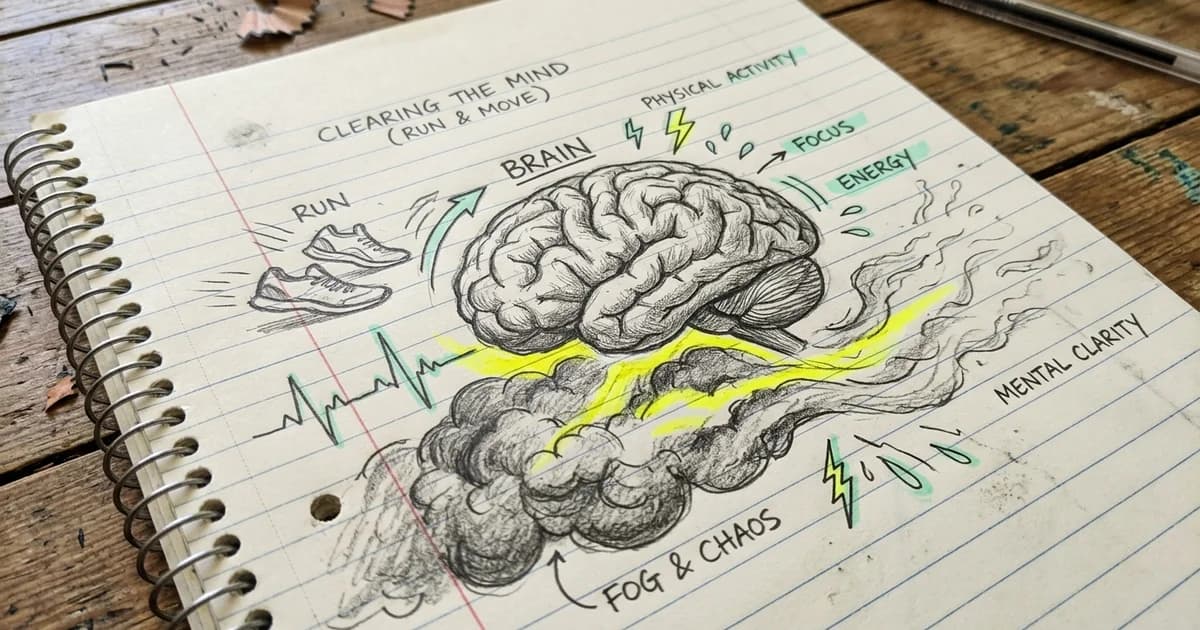 CLEARING THE MIND
(RUN & MOVE)
PHYSICAL ACTIVITY
BRAIN
FOCUS
ENERGY
RUN
MENTAL CLARITY
FOG & CHAOS